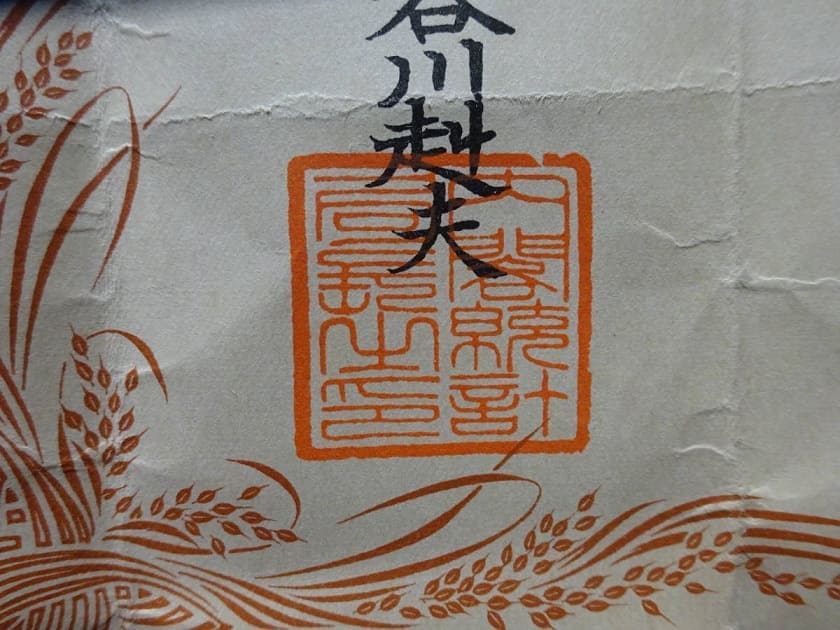 谷川赳夫
内閣統計
局長之印